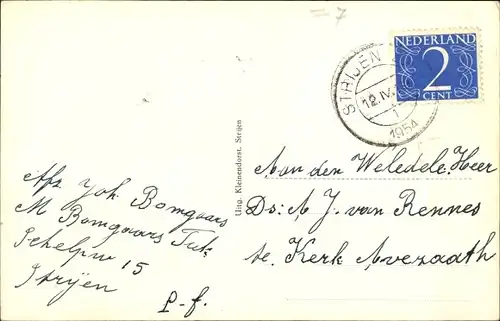 = 7
NEDERLAND
2
CENT
STRIJEN
12.IV.
1
1954
Uitg. Kleinendorst, Strijen
Afz Joh. Bomgaars
M Bomgaars
Schelpw 15
Strijen
p-f.
Aan den Weledele. Heer
Ds: A J. van Rennes
te. Kerk Avezaath